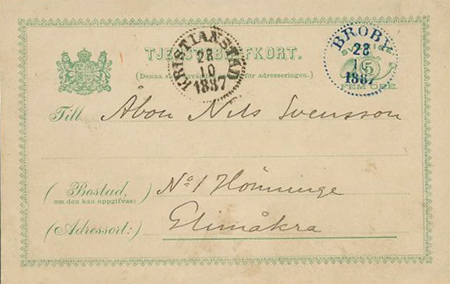 TJENSTEBREFKORT.
(Denna sida för adresseringen.)
KRISTIANSTAD
28
10
1887
BROBY
28
10
1887
5
FEM ÖRE
Till Åbon Nils Svensson
(Bostad, No 1 Hönninge
om den kan uppgifvas:)
(Adressort:) Glimåkra